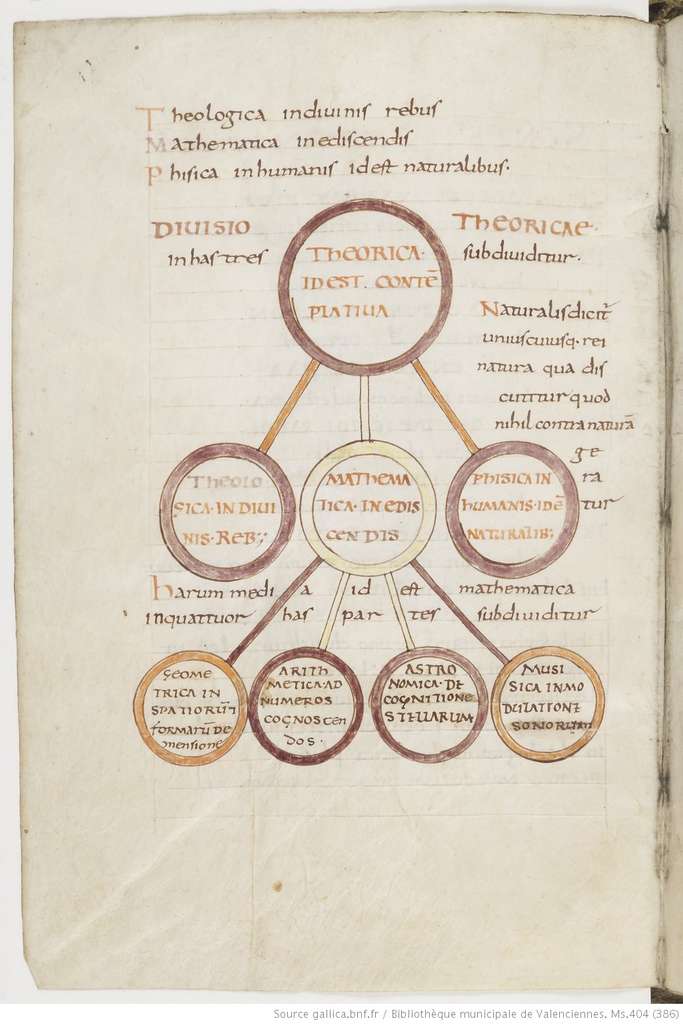 Theologica indiuinis rebus
Mathematica inediscendis
Phisica inhumanis idest naturalibus.
DIUISIO
inhastres
THEORICA.
IDEST. CONTĒ
PLATIUA
THEORICAE.
subdiuiditur.
Naturalisdicit̄
uniuscuiusq. rei
natura qua dis
cutiturquod
nihil contra naturā
ge
ra
tur
THEOLO
GICA. IN DIUI
NIS. REB;
MATHEMA
TICA. IN EDIS
CEN DIS
PHISICA IN
HUMANIS. IDĒ
NATURALIB;
harum medi a id est mathematica
inquattuor has par tes subdiuiditur
GEOME
TRICA IN
SPATIORUM
formarum DE
mensione
ARITH
METICA. AD
NUMEROS
COGNOSCEN
DOS.
ASTRO
NOMICA. DE
COGNITIONE
STELLARUM
MUSI
SICA INMO
DULATIONE
SONORUM
Source gallica.bnf.fr / Bibliothèque municipale de Valenciennes. Ms.404 (386)